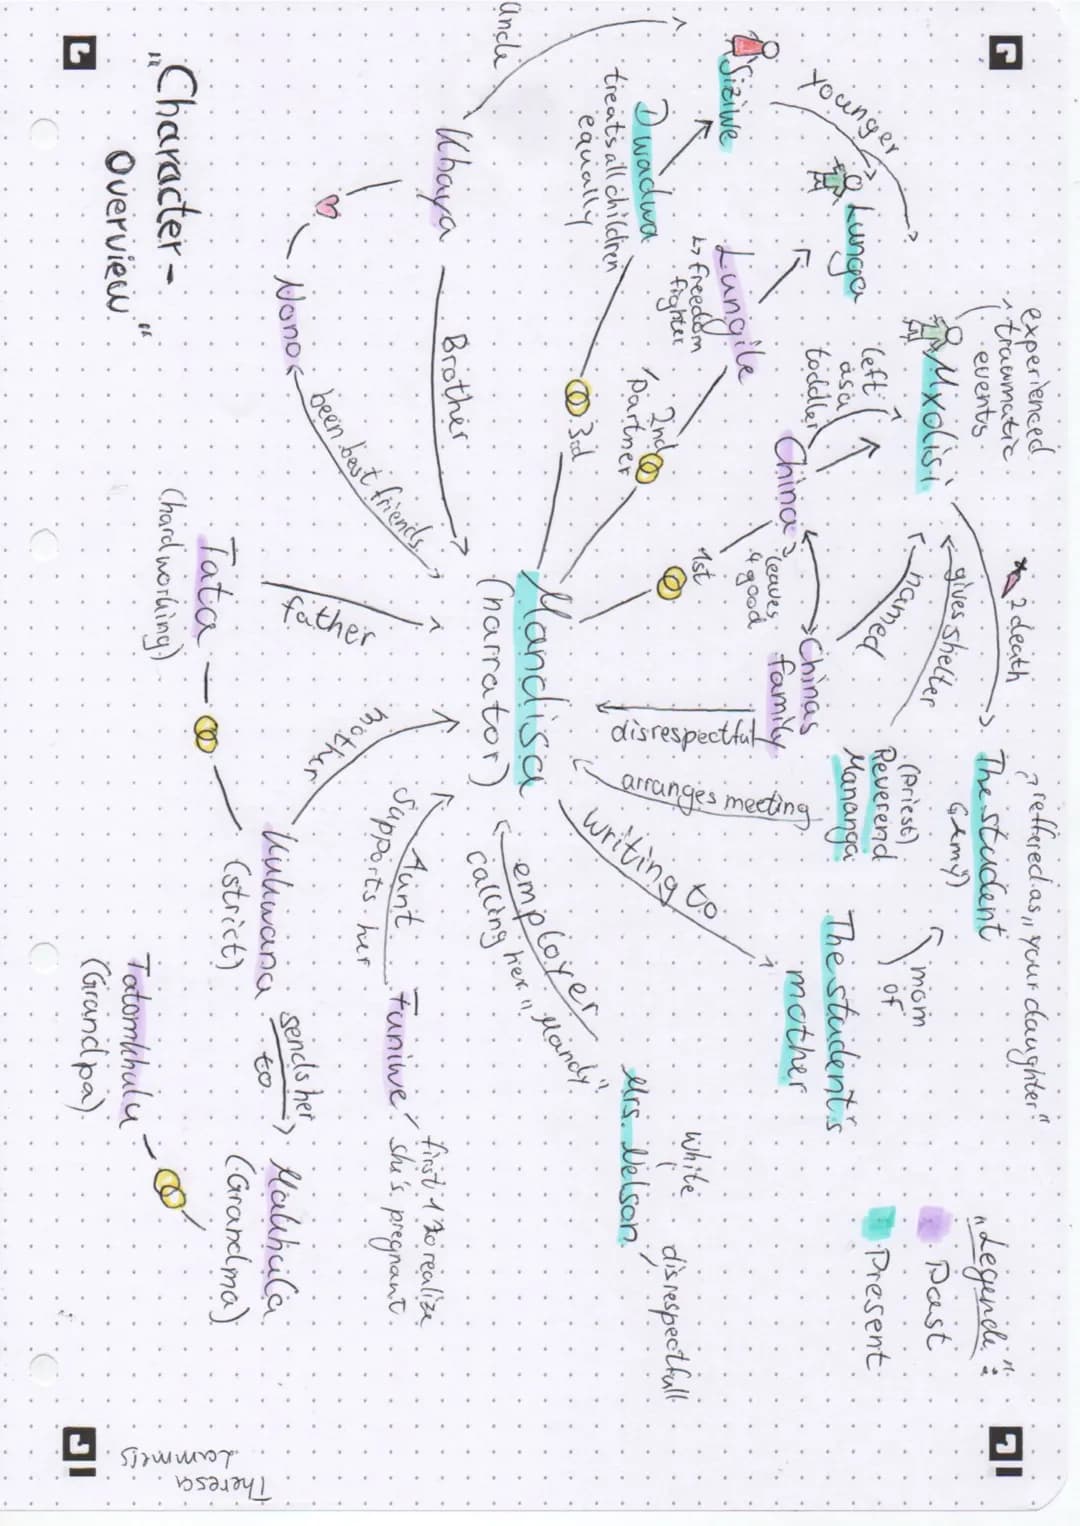 "Character-
Overview"
uncle
Siziwe
younger
Dwadwa
treats all children
equally
Lunga
Khaya
Lungile
↳ freedom
fighter
experienced
traumatic
events
Mxolisi
left
as a
toddler
China
Nono
Brother
been best friends
3rd
2nd
partner
1st
leaves
4 good
Chinas
family
named
gives shelter
2 death
Mandisa
(narrator)
Tata
(hardworking)
father
disrespectful
arranges meeting
(Priest)
Reverend
Mananga
The student
(Amy)
reffered as „your daughter"
mother
Kukwana
(strict)
Aunt
supports her
Funiwe
first 1 to realize
she's pregnant
employer
calling her „Mandy"
writing to
The student's
mother
mom
of
Mrs. Nelson
white
disrespectfull
sends her
to
Makhulu
(Grandma)
Tatomkhulu
(Grandpa)
"Legende":
Past
Present
Theresa
Lammers